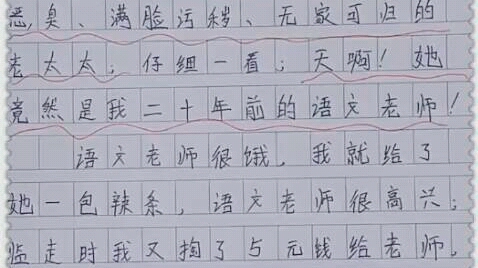 恶臭、满脸污秽、无家可归的
老太太；仔细一看；天啊！她
竟然是我二十年前的语文老师！
语文老师很饿，我就给了
她一包辣条，语文老师很高兴；
临走时我又掏了5元钱给老师。